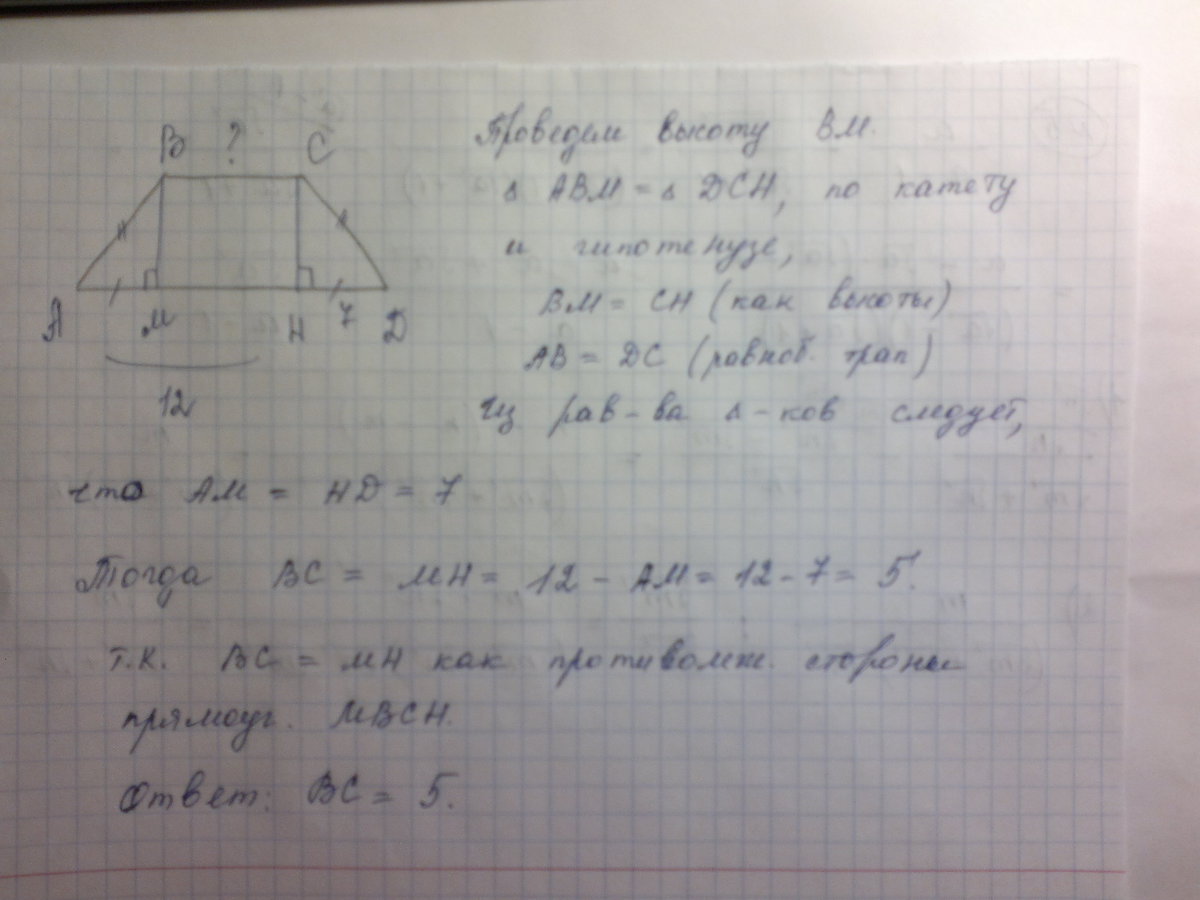 B ? C
A M H 7 D
12
Проведем высоту BM.
Δ ABM = Δ DCH, по катету
и гипотенузе,
BM = CH (как высоты)
AB = DC (равноб. трап)
Из рав-ва Δ-ков следует,
что AM = HD = 7
Тогда BC = MH = 12 - AM = 12 - 7 = 5.
т.к. BC = MH как противолж. стороны
прямоуг. MBCH.
Ответ: BC = 5.